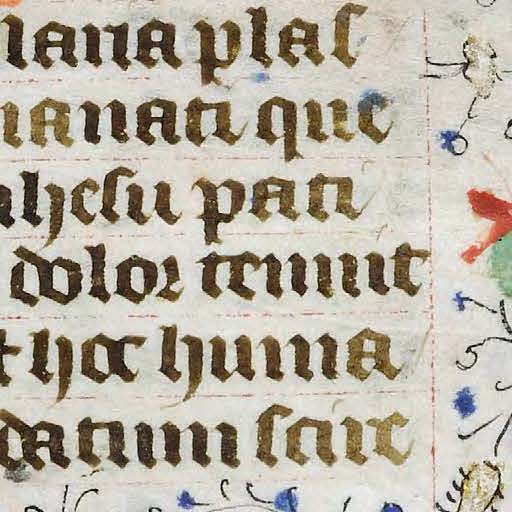 mana plas
manati que
ihesu pati
dolor tenuit
t hoc huma
datum scire